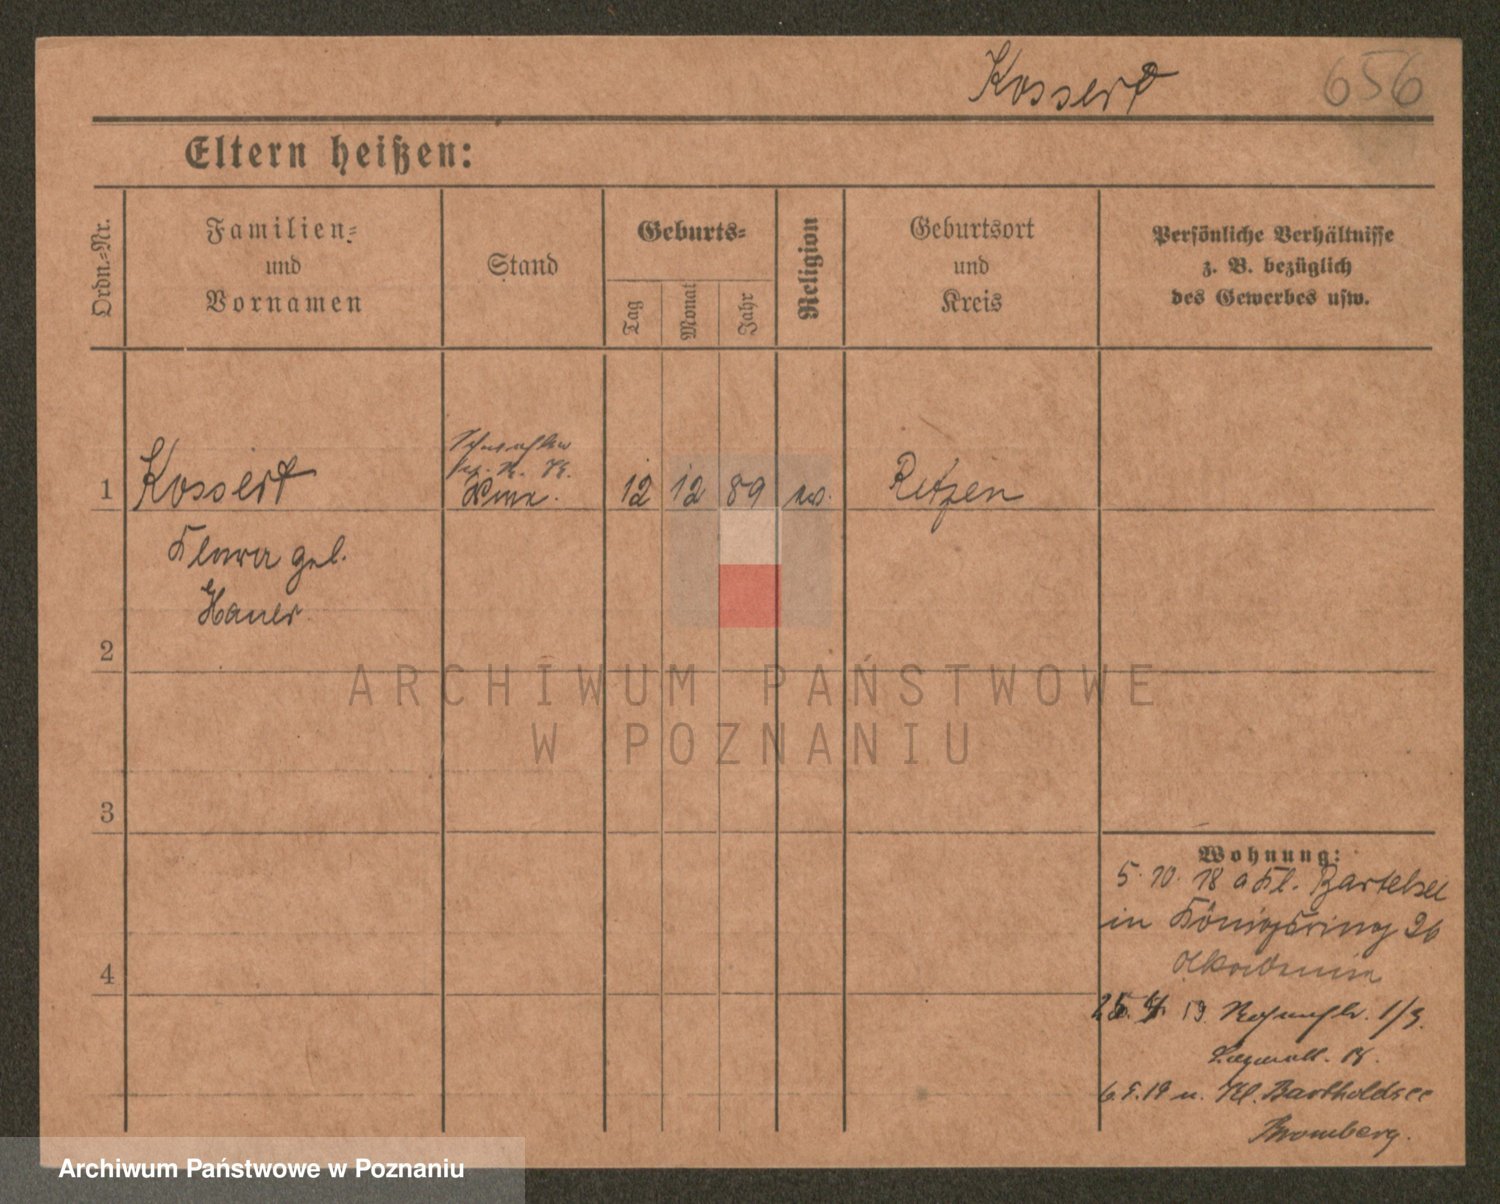 Kossert 656
Eltern heißen:
Ordn.-Nr.
Familien-
und
Vornamen
Stand
Geburts-
Tag
Monat
Jahr
Religion
Geburtsort
und
Kreis
Persönliche Verhältnisse
z. B. bezüglich
des Gewerbes usw.
1 Kossert 12 12 89 ev. Retzen
Klara geb.
Hauer
2
3
4
ARCHIWUM PAŃSTWOWE
W POZNANIU
Wohnung:
5. 10. 18 a Kl. Bartelsee
in Königsring 26
19. 1/3.
6.5.19 n. Kl. Bartholdsee
Bromberg.
Archiwum Państwowe w Poznaniu